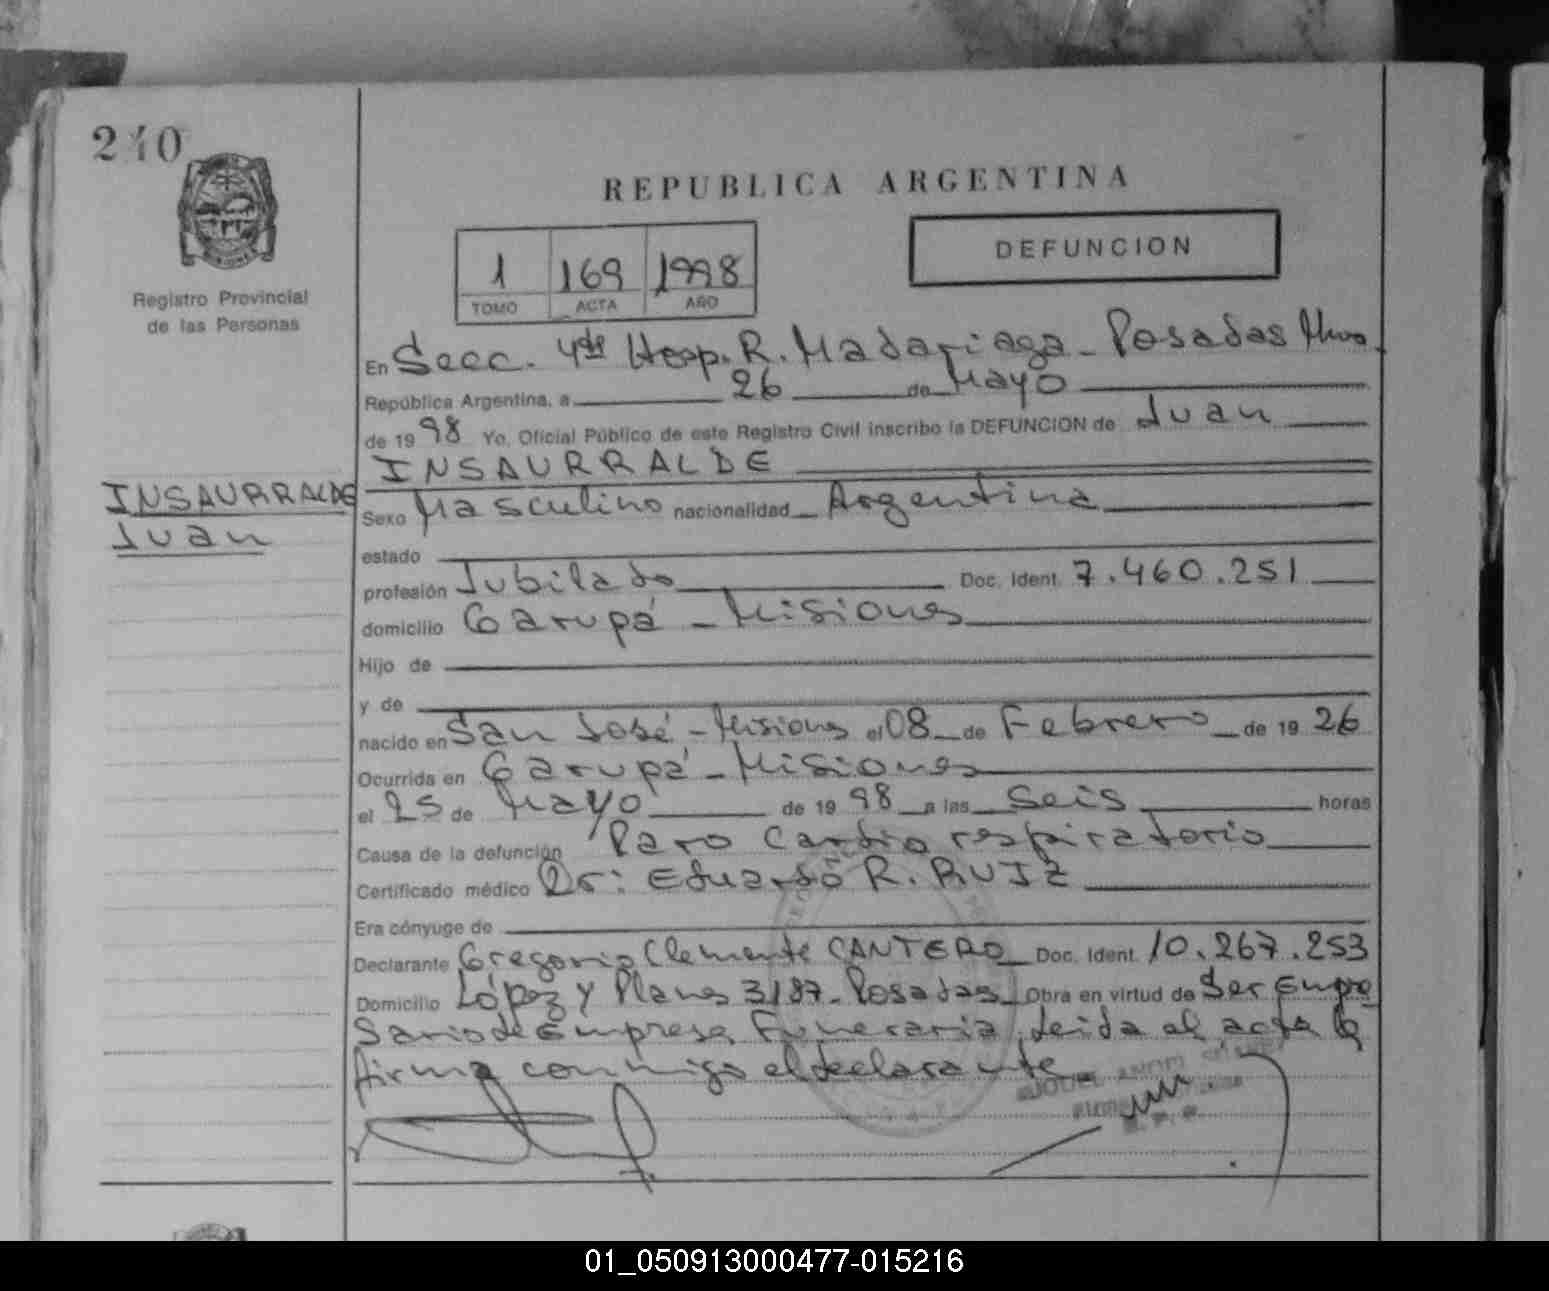 240
REPUBLICA ARGENTINA
1 169 1998
TOMO ACTA AÑO
DEFUNCION
Registro Provincial
de las Personas
En Secc. 4ta Hosp. R. Madariaga - Posadas Mnes
República Argentina, a 26 de Mayo
de 1998 Yo, Oficial Público de este Registro Civil inscribo la DEFUNCION de Juan
INSAURRALDE
INSAURRALDE
Juan
Sexo Masculino nacionalidad Argentina
estado
profesión Jubilado Doc. Ident. 7.460.251
domicilio Garupá - Misiones
Hijo de
y de
nacido en San José - Misiones el 08 de Febrero de 1926
Ocurrida en Garupá - Misiones
el 25 de Mayo de 1998 a las Seis horas
Causa de la defunción Paro Cardio respiratorio
Certificado médico Dr: Eduardo R. RUIZ
Era cónyuge de
Declarante Gregorio Clemente CANTERO Doc. Ident. 10.267.253
Domicilio López y Planes 3187 - Posadas Obra en virtud de Ser Empre
sario de Empresa Funeraria. Leida el acta la
firma conmigo el declarante
01_050913000477-015216